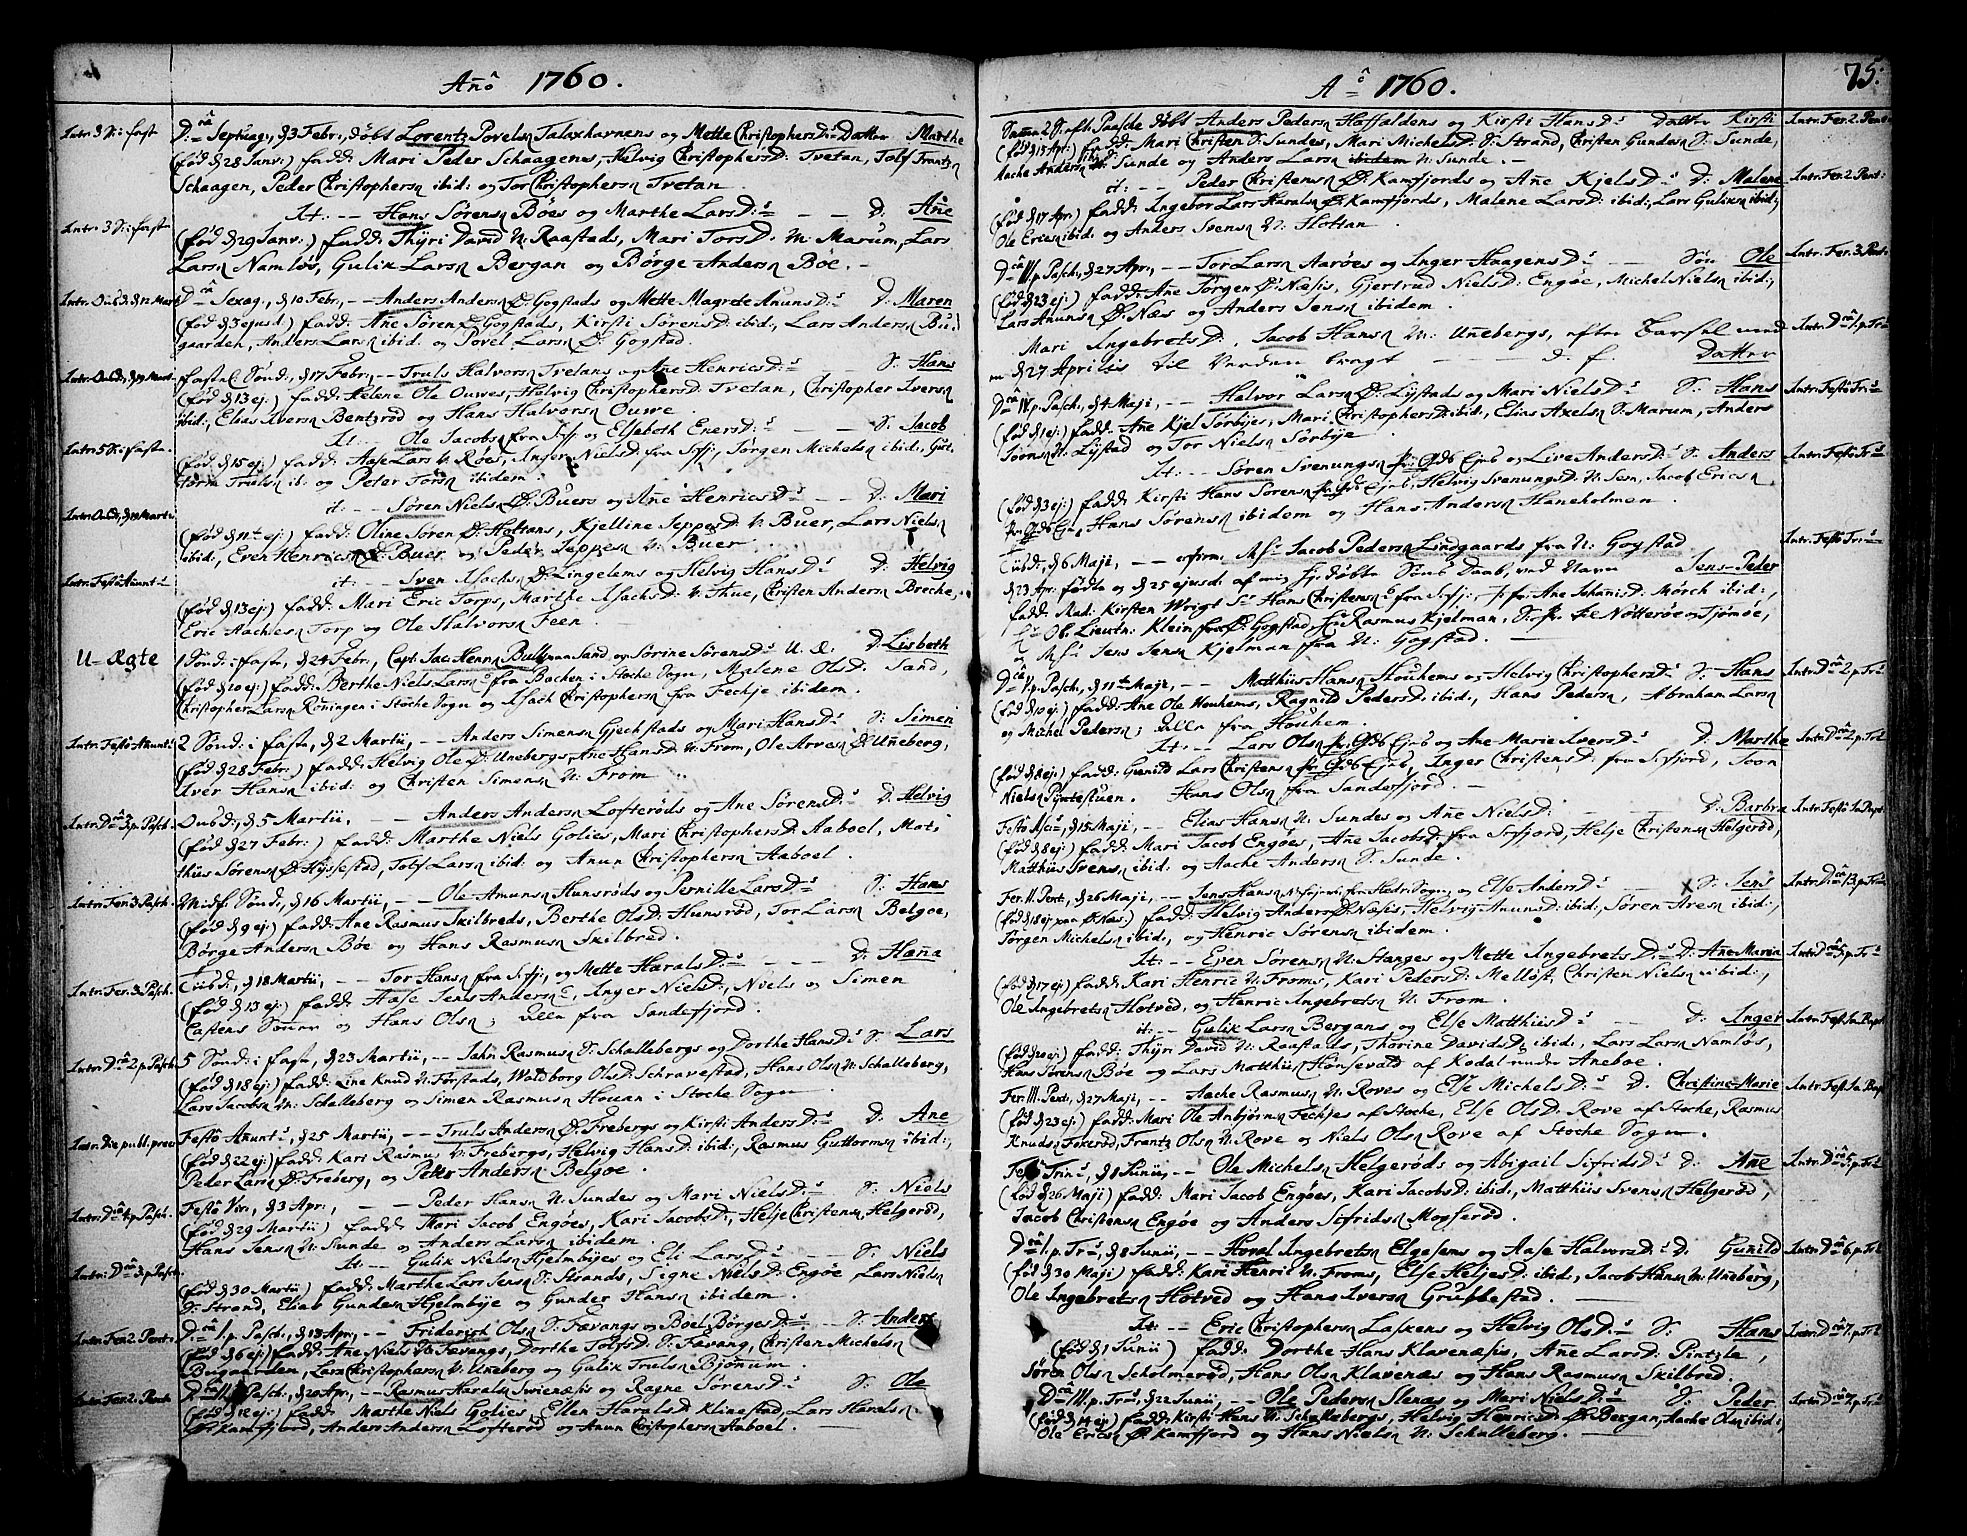 Año 1760.
Intr. 3 S: i fast
D: Septuag: d 3 Febr:, døbt Lorentz Povels Jalaxhavnens og Mette ChristophersD: Datter Marthe
(fød d 28 Janv:) fadd: Mari Peder Schaagenes, Helvig ChristophersD: Tvetan, Tolf Frantz
Schaagen, Peder Christophers ibid: og Tor Christophers Tvetan.
Intr. 3 S: i fast
It: -- Hans Sørens Bøes og Marthe LarsD: -- D: Añe
(fød d 29 Janv:) fadd: Thÿri David N: Raastads, Mari TorsD. N: Marum, Lars
Lars Namløs, Gulik Lars Bergan og Børge Anders Bøe. -
Intr. Onsd. d 12 Mart
D: Sexag:, d 10 Febr:, -- Anders Anders Ø: Gogstads og Mette Magrete AnunsD: D: Maren
(fød d 3 ejusd.) fadd: Añe Søren Ø: Gogstads, Kirsti SørensD: ibid:, Lars Anders Bu-
gaarden, Anders Lars ibid: og Povel Lars Ø: Gogstad.
Intr. Onsd, d 19 Mart:
fastel: Sønd:, d 17 Febr:, -- Truls Halvors Tvetans og Ane HenricsD: S: Hans
(fød d 13 ej:) fadd: Helene Ole Ouwes, Helvig ChristophersD: Tvetan, Christopher Ivers
ibid:, Elias Ivers Bentzrød og Hans Halvors Ouwe.
Intr. 5 S: i fasta
It: Ole Jacobs fra Sefj: og Elsebeth EnersD: -- S: Jacob
(fød d 15 ej:) fadd: Aase Lars V: Røes, Inger NielsD: fra Sefj:, Jørgen Michels ibid:, Gut-
torm Truls ib: og Peter Tors ibidem.
Intr. Onsd, d 19 Martii
it: -- Søren Niels Ø: Buers og Ane HenricsD: -- D: Mari
(fød d 11 ej:) fadd: Oline Søren Ø: Holtans, Kjelline JeppesD: N: Buer, Lars Niels
ibid:, Even Henrics Ø: Buer og Peder Jeppes N: Buer.
Intr. Festo Anunt:
it: -- Sven Isachs Ø: Lingelems og Helvig HansD: D: Helvig
(fød d 13 ej:) fadd: Mari Eric Torps, Marthe IsachsD: N: Thue, Christen Anders Breche,
Eric Aaches Torp og Ole Halvors Feen.
U-Ægte
1 Sønd: i fasta, d 24 Febr:, Capt. Jac: Henr: Bull Sand og Sørine SørensD: U. Æ. D: Lisbeth
(fød d 10 ej:) fadd: Berthe Niels Lars fra Bachen i Stoche Sogn, Malene OlsD: Sand,
Christopher Lars Røningen i Stoche Sogn og Isach Christophers fra Fechje ibidem.
Intr. Festo Anunt:
2 Sønd: i fasta, d 2 Martii, -- Anders Simens Gjechstads og Mari HansD: S: Simen
(fød d 28 Febr:) fadd: Helvig Ole Ø: Unebergs, Ane HansD: N: From, Ole Arves Ø: Uñeberg,
Iver Hans ibid: og Christen Simens N: From
Intr. D: 3 p. Pasch:
Onsd:, d 5 Martii, -- Anders Anders Lofterøds og Ane SørensD: D: Helvig
(fød d 27 Febr:) fadd: Marthe Niels Golies, Mari ChristophersD: Aaboel, Mat-
thias Sørens Ø: Hÿssestad, Tolf Lars ibid: og Anun Christophers Aaboel.
Intr. Fer. 3. Pasch.
Midf. Sønd:, d 16 Martii, -- Ole Amuns Hunsrøds og Pernille LarsD: S: Hans
(fød d 9 ej:) fadd: Ane Rasmus Skilbreds, Berthe OlsD: Hunsrød, Tor Lars Belgoe,
Børge Anders Bøe og Hans Rasmus Skilbred.
Intr. Fer. 3. Pasch.
Tiisd:, d 18 Martii, -- Tor Hans fra Sefj: og Mette HaralsD: -- D: Haña
(fød d 13 ej:) fadd: Aase Jens Anders, Inger NielsD:, Niels og Simen
Castens Sønner og Hans Ols; alle fra Sandefjord.
Intr: D: 2 p. Pasch.
5 Sønd: i fasta, d 23 Martii, -- John Rasmus S: Schallebergs og Dorthe HansD: S: Lars
(fød d 18 ej:) fadd: Line Knud N: Førstads, Waldborg OlsD: Schravestad, Hans Ols N: Schalleberg,
Lars Jacobs N: Schalleberg og Simen Rasmus Houan i Stoche Sogn
Intr. Die publ: prec
Festo Anunt:, d 25 Martii, -- Truls Anders Ø: Frebergs og Kirsti AndersD: D: Ane
(fød d 22 ej:) fadd: Kari Rasmus V: Frebergs, Helvig HansD: ibid:, Rasmus Guttorms ibid:,
Peder Lars Ø: Freberg, og Peder Anders Belgoe.
Intr. D: 4 p. Pasch.
Festo Vir:, d 3 Apr:, -- Peder Hans N: Sundes og Mari NielsD: S: Niels
(fød d 29 Martii) fadd: Mari Jacob Engøes, Kari JacobsD: ibid:, Helje Christens Helgerød,
Hans Jens N: Sunde og Anders Lars ibidem.
Intr: D: 3. p. Pasch
It: -- Gulik Niels Hjelmbÿes og Eli LarsD: -- S: Niels
(fød d 30 Martii) fadd: Marthe Lars Jens S: Strands, Signe NielsD: Engøe, Lars Niels
S: Strand, Elias Gunders Hjelmbÿe og Gunder Hans ibidem.
Intr: Fer 2. Pent:
D: 1. p. Pasch:, d 13 Apr:, -- Friderich Ols S: Fævangs og Boel BørgesD: -- S: Anders
(fød d 6 ej:) fadd: Ane Niels N: Fævangs, Dorthe TolfsD: S: Fævang, Christen Michels
Bugaarden, Lars Christophers V: Uneberg og Gulik Truls Bjønum.
Intr. Fer: 2. Pent
D: II p. Pasch:, d 20 Apr:, -- Rasmus Harals Svienæsis og Ragne SørensD: S: Ole
(fød d 12 ej:) fadd: Marthe Niels Golies, Ellen HaralsD Klinestad, Lars Harals
Ø: Kamfjord, Anders Anders Lofterød og Anun Christophers Aaboel.
A: 1760.
75:
Samme 2 S. aft: Paaske døbt Anders Peders Haffaldens og Kirsti HansD: Datter Kirsti
(fød d 13 Apr:) fadd: Mari Christen S: Sundes, Mari MichelsD: S: Strand, Christen Gunders S: Sunde,
Aache Anders N: Sunde og Anders Lars ibidem N: Sunde. -
Intr. Fer. 2. Pent:
it: -- Peder Christens Ø: Kamfjords og Añe KjelsD: D: Malene
(fød d 17 Apr:) fadd: Ingebor Lars Harals Ø: Kamfjords, Malene LarsD: ibid:, Lars Guliks ibid:,
Ole Erics ibid: og Anders Svens N: Hottan.
Intr. Fer. 2. Pent:
D: III p. Pasch:, d 27 Apr:, -- Tor Lars Aarøes og Inger HaagensD: Søn Ole
(fød d 23 ej:) fadd: Ane Jørgen Ø: Næsis, Gjertrud NielsD: Engøe, Michel Niels ibid:,
Lars Anuns Ø: Næs og Anders Jens ibidem.
Intr. Fer. 3. Pent:
Mari IngebretsD. Jacob Hans N: Uñebergs, efter Barsel med
d. f. Datter
d 27 Aprilis til Verden bragt
Intr. D: 1. p. Tr:
D: IV p. Pasch:, d 4 Maji, -- Helvor Lars Ø: Lÿstads og Mari NielsD: S: Hans
(fød d 1 ej:) fadd: Añe Kjel Sørbÿes, Mari ChristophersD: ibid:, Elias Axels S: Marum, Anders
Joons N: Lÿstad og Tor Niels Sørbÿe.
Intr. Festo Tri:
It: -- Søren Svenungs fr: Gds Ejeb og Live AndersD: S: Anders
(fød d 3 ej:) fadd: Kirsti Hans Sørens fr: Gds Ejeb, Helvig SvenungsD: N: Sem, Jacob Erics
Hans Sørens ibidem og Hans Anders Haneholmen.
Intr. Festo Tri:
Tiisd:, d 6 Maji, -- confirm: Ms: Jacob Peders Lindgaards fra N: Gogstad
d 23 Apr. fødte og d 25 ejusd: af mig hj:døbte Søns Daab, ved Navn Jens-Peder
fadd: Mad: Kirsten Wrigt S: Hans Christens fra Sefj:, Jfr: Ane JohanisD: Mørch ibid:,
Hr: Ob. Lieutn: Klein fra Ø: Gogstad, Hr: Rasmus Kjelman, S. pr. til Nøtterøe og Tjømøe,
og Ms: Jens Jens Kjelman fra N: Gogstad.
Intr. Festo Tri:
D: V. p. Pasch, d 11 Maji, -- Matthias Hans Houhems og Helvig ChristophersD: S: Hans
(fød d 10 ej:) fadd: Ane Ole Houhems, Ragnild PedersD: ibid:, Hans Peders, Abraham Lars
og Michel Peders; alle fra Houhem.
Intr. D: 2 p. Tr:
It: -- Lars Ols fr: Gds Ejeb og Ane-Marie IversD: D: Marthe
(fød d 8 ej:) fadd: Gunild Lars Christens fr: Gds Ejeb, Inger ChristensD: fra Sefjord, Joon
Niels Pÿntestuen. Hans Ols fra Sandefjord. -
Intr. D: 2. p. Tr:
Festo Asc:, d 15 Maji, -- Elias Hans N: Sundes og Ane NielsD: D: Barbra
(fød d 8 ej:) fadd: Mari Jacob Engøes, Añe JacobsD: fra Sefjord, Helje Christens Helgerød,
Matthias Svens ibidem, og Aache Anders S: Sunde.
Intr. Festo Jo: Bapt
Fer. II. Pent., d 26 Maji, -- Jens Hans fra Hedr: Sogn, og Else AndersD: -- X S: Jens
(fød d 18 ej: paa Ø: Næs) fadd: Helvig Anders Ø: Næsis, Helvig AnunsD: ibid:, Søren Ares ibid:,
Jørgen Michels ibid:, og Henric Sørens ibidem.
Intr. D: 13. p. Tr:
It: -- Even Sørens N: Stanges og Mette IngebretsD: D: Ane-Maria
(fød d 17 ej:) fadd: Kari Henric N: Froms, Kari PedersD: Melløst, Christen Niels ibid:,
Ole Ingebrets Hotved, og Henric Ingebrets N: From.
Intr. D: 5. p. Tr:
it: -- Gulik Lars Bergans og Else MatthiasD: -- D: Inger
(fød d 20 ej:) fadd: Thÿri David N: Raastads, Thorine DavidsD: ibid:, Lars Lars Namløs,
Hans Sørens Bøe og Lars Matthias Hønsevald af Kodal under Aneboe.
Intr. Fest. Jo: Bapt
Fer. III. Pent:, d 27 Maji, -- Aache Rasmus N: Roves og Else MichelsD: D. Christine-Marie
(fød d 23 ej:) fadd: Mari Ole Anbjørns Fechjes af Stoche, Else OlsD: Rove af Stoche, Rasmus
Knuds Fexerød, Frantz Ols N: Rove og Niels Ols Rove af Stoche Sogn.
Intr. Fest. Jo: Bapt
Festo Trin:, d 1 Junii, -- Ole Michels Helgerøds og Abigail SifridsD: D: Añe
(fød d 26 Maji) fadd: Mari Jacob Engøes, Kari JacobsD: ibid:, Matthias Svens Helgerød,
Jacob Christens Engøe og Anders Sifrids Mogserød.
Intr. D: 5. p. Tr:
D: 1. p. Tr:, d 8 Junii, -- Hovel Ingebrets Elgesems og Aase HalvorsD: D. Gunild
(fød d 30 Maji) fadd: Kari Henric N: Froms, Else HeljesD: ibid:, Jacob Hans N: Uneberg,
Ole Ingebrets Hotved og Hans Ivers Gruppestad.
Intr. D: 6. p. Tr:
It: -- Eric Christophers Laskens og Helvig OlsD: S: Hans
(fød d 1 Junii) fadd: Dorthe Hans Klavenæsis, Añe LarsD: Pintzle,
Søren Ols Scholmerød, Hans Ols Klavenæs og Hans Rasmus Skilbred.
Intr. D: 7. p. Tr:
D: III. p. Tr:, d 22 Junii, -- Ole Peders Slenæs og Mari NielsD: S: Peder
(fød d 14 ej:) fadd: Kirsti Hans N: Schallebergs, Helvig HenricsD: Ø: Bergan, Aache Ols ibid:,
Ole Erics Ø: Kamfjord og Hans Niels N: Schalleberg.
Intr. D: 7. p. Tr: